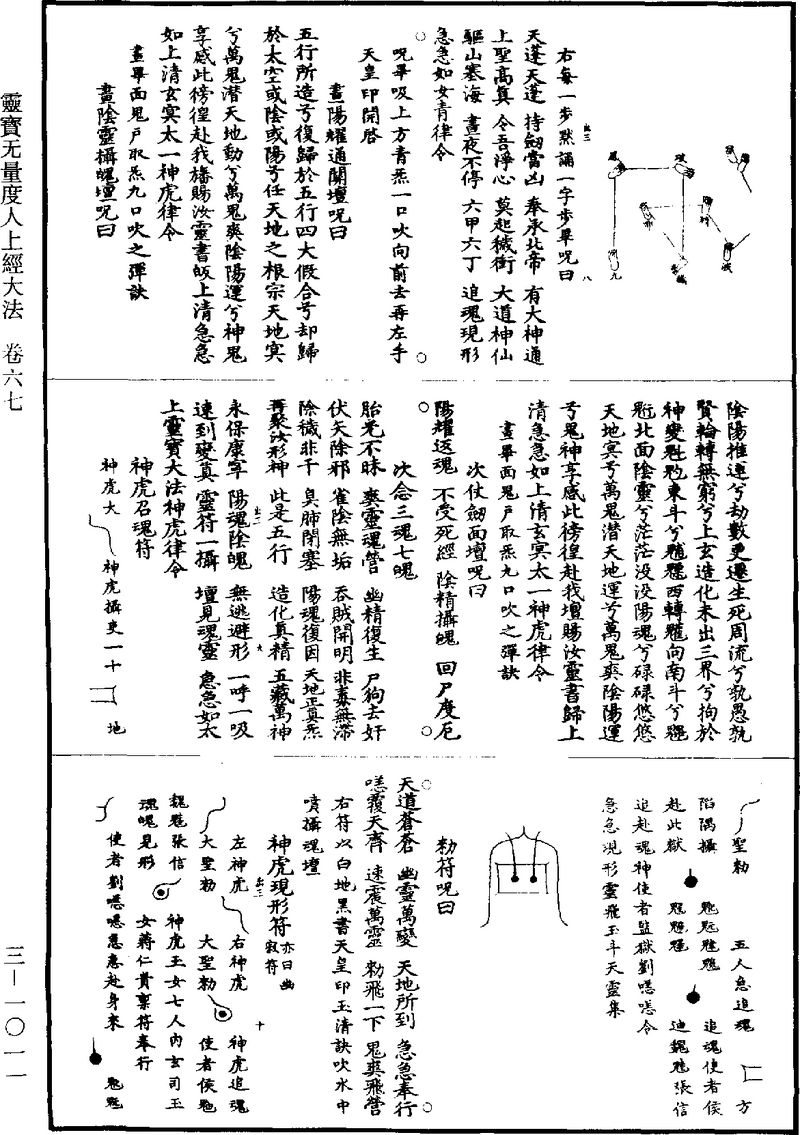 靈寶无量度人上經大法　卷六七
三－一〇一一
右每一步默誦一字步畢呪曰
天蓬天蓬　持劒當凶　奉承北帝　有大神通
上聖高真　令吾淨心　莫起穢衝　大道神仙
驅山塞海　晝夜不停　六甲六丁　追魂現形
急急如女青律令
呪畢吸上方青炁一口吹向前去再左手
天皇印開啓
畫陽耀通關壇呪曰
五行所造兮復歸於五行四大假合兮却歸
於太空或陰或陽兮任天地之根宗天地冥
兮萬鬼潛天地動兮萬鬼爽陰陽運兮神鬼
享感此徬徨赴我壇賜汝靈書皈上清急急
如上清玄冥太一神虎律令
畫畢面鬼戶取炁九口吹之彈訣
畫陰靈攝魄壇呪曰
陰陽推運兮劫數更遷生死周流兮孰愚孰
賢輪轉無窮兮上玄造化未出三界兮拘於
神變魁魓東斗兮
西轉
向南斗兮
北面陰靈兮茫茫没没陽魂兮碌碌悠悠
天地冥兮萬鬼潛天地運兮萬鬼爽陰陽運
兮鬼神享感此徬徨赴我壇賜汝靈書歸上
清急急如上清玄冥太一神虎律令
畫畢面鬼戶取炁九口吹之彈訣
次仗劒面壇呪曰
陽耀返魂　不受死經　陰精攝魄　回尸度厄
次念三魂七魄
胎光不昧　爽靈魂營　幽精復生　尸狗去奸
伏矢除邪　雀陰無垢　吞賊開明　非毒無滯
除穢非干　臭肺閉塞　陽魂復因　天地正真炁
再聚汝形神　此是五行　造化真精　五藏萬神
永保康寧　陽魂陰魄　無逃避形　一呼一吸
速到變真　靈符一攝　壇見魂靈　急急如太
上靈寶大法神虎律令
神虎召魂符
神虎大　神虎攝吏一十　地
聖勑　五人急追魂　方
陷隅攝　追魂使者侯
赴此獄　張信
追赴魂神使者監獄劉　令
急急現形靈飛玉斗天靈集
勑符呪曰
天道蒼蒼　幽靈萬變　天地所到　急急奉行
覆天齊　速震萬靈　勑飛一下　鬼爽飛營
右符以白地黑書天皇印玉清訣吹水中
噴攝魂壇
神虎現形符　亦曰幽寂符
左神虎　右神虎　神虎追魂
大聖勑　大聖勑　使者侯
張信　神虎玉女七人內玄司玉
魂魄見形　女蔣仁貴禀符奉行
使者劉　急赴身來